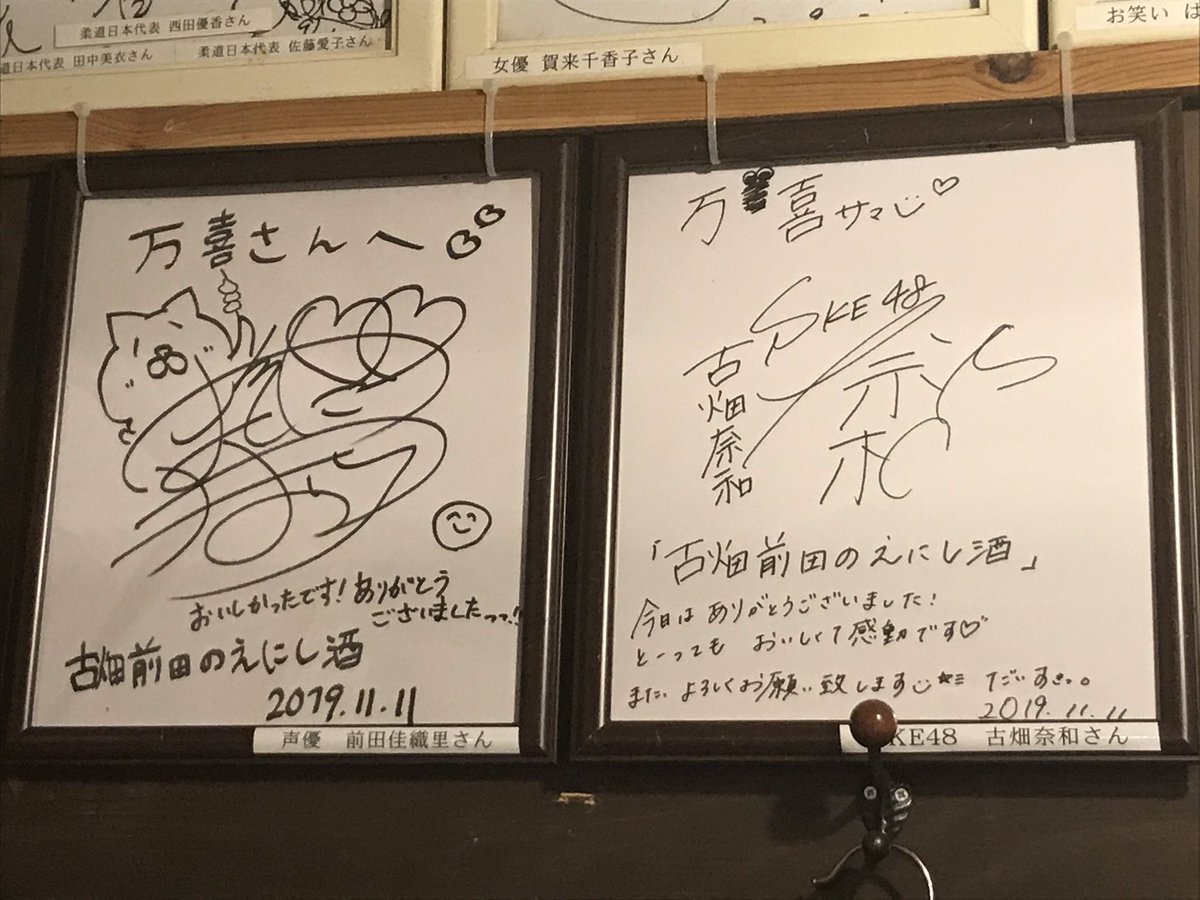 柔道日本代表 西田優香さん
柔道日本代表 田中美衣さん
柔道日本代表 佐藤愛子さん
女優 賀来千香子さん
お笑い は
万喜さんへ
おいしかったです!ありがとう
ございましたっっ!!
古畑前田のえにし酒
2019.11.11
声優 前田佳織里さん
万喜サマ
SKE48
古畑奈和
「古畑前田のえにし酒」
今日はありがとうございました!
とーっても おいしくて感動です♡
また、よろしくお願い致します だいすき。
2019.11.11
KE48 古畑奈和さん